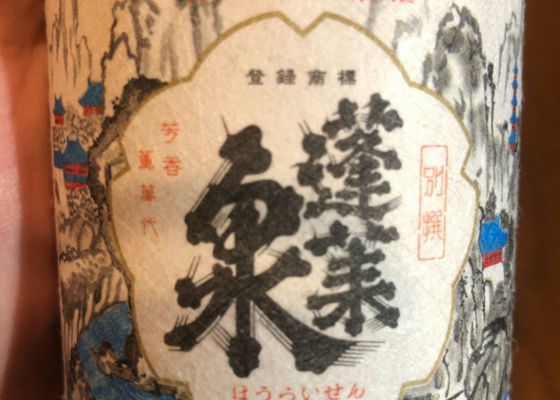 登録商標
蓬莱
泉
別撰
芳香
萬華代
ほうらいせん